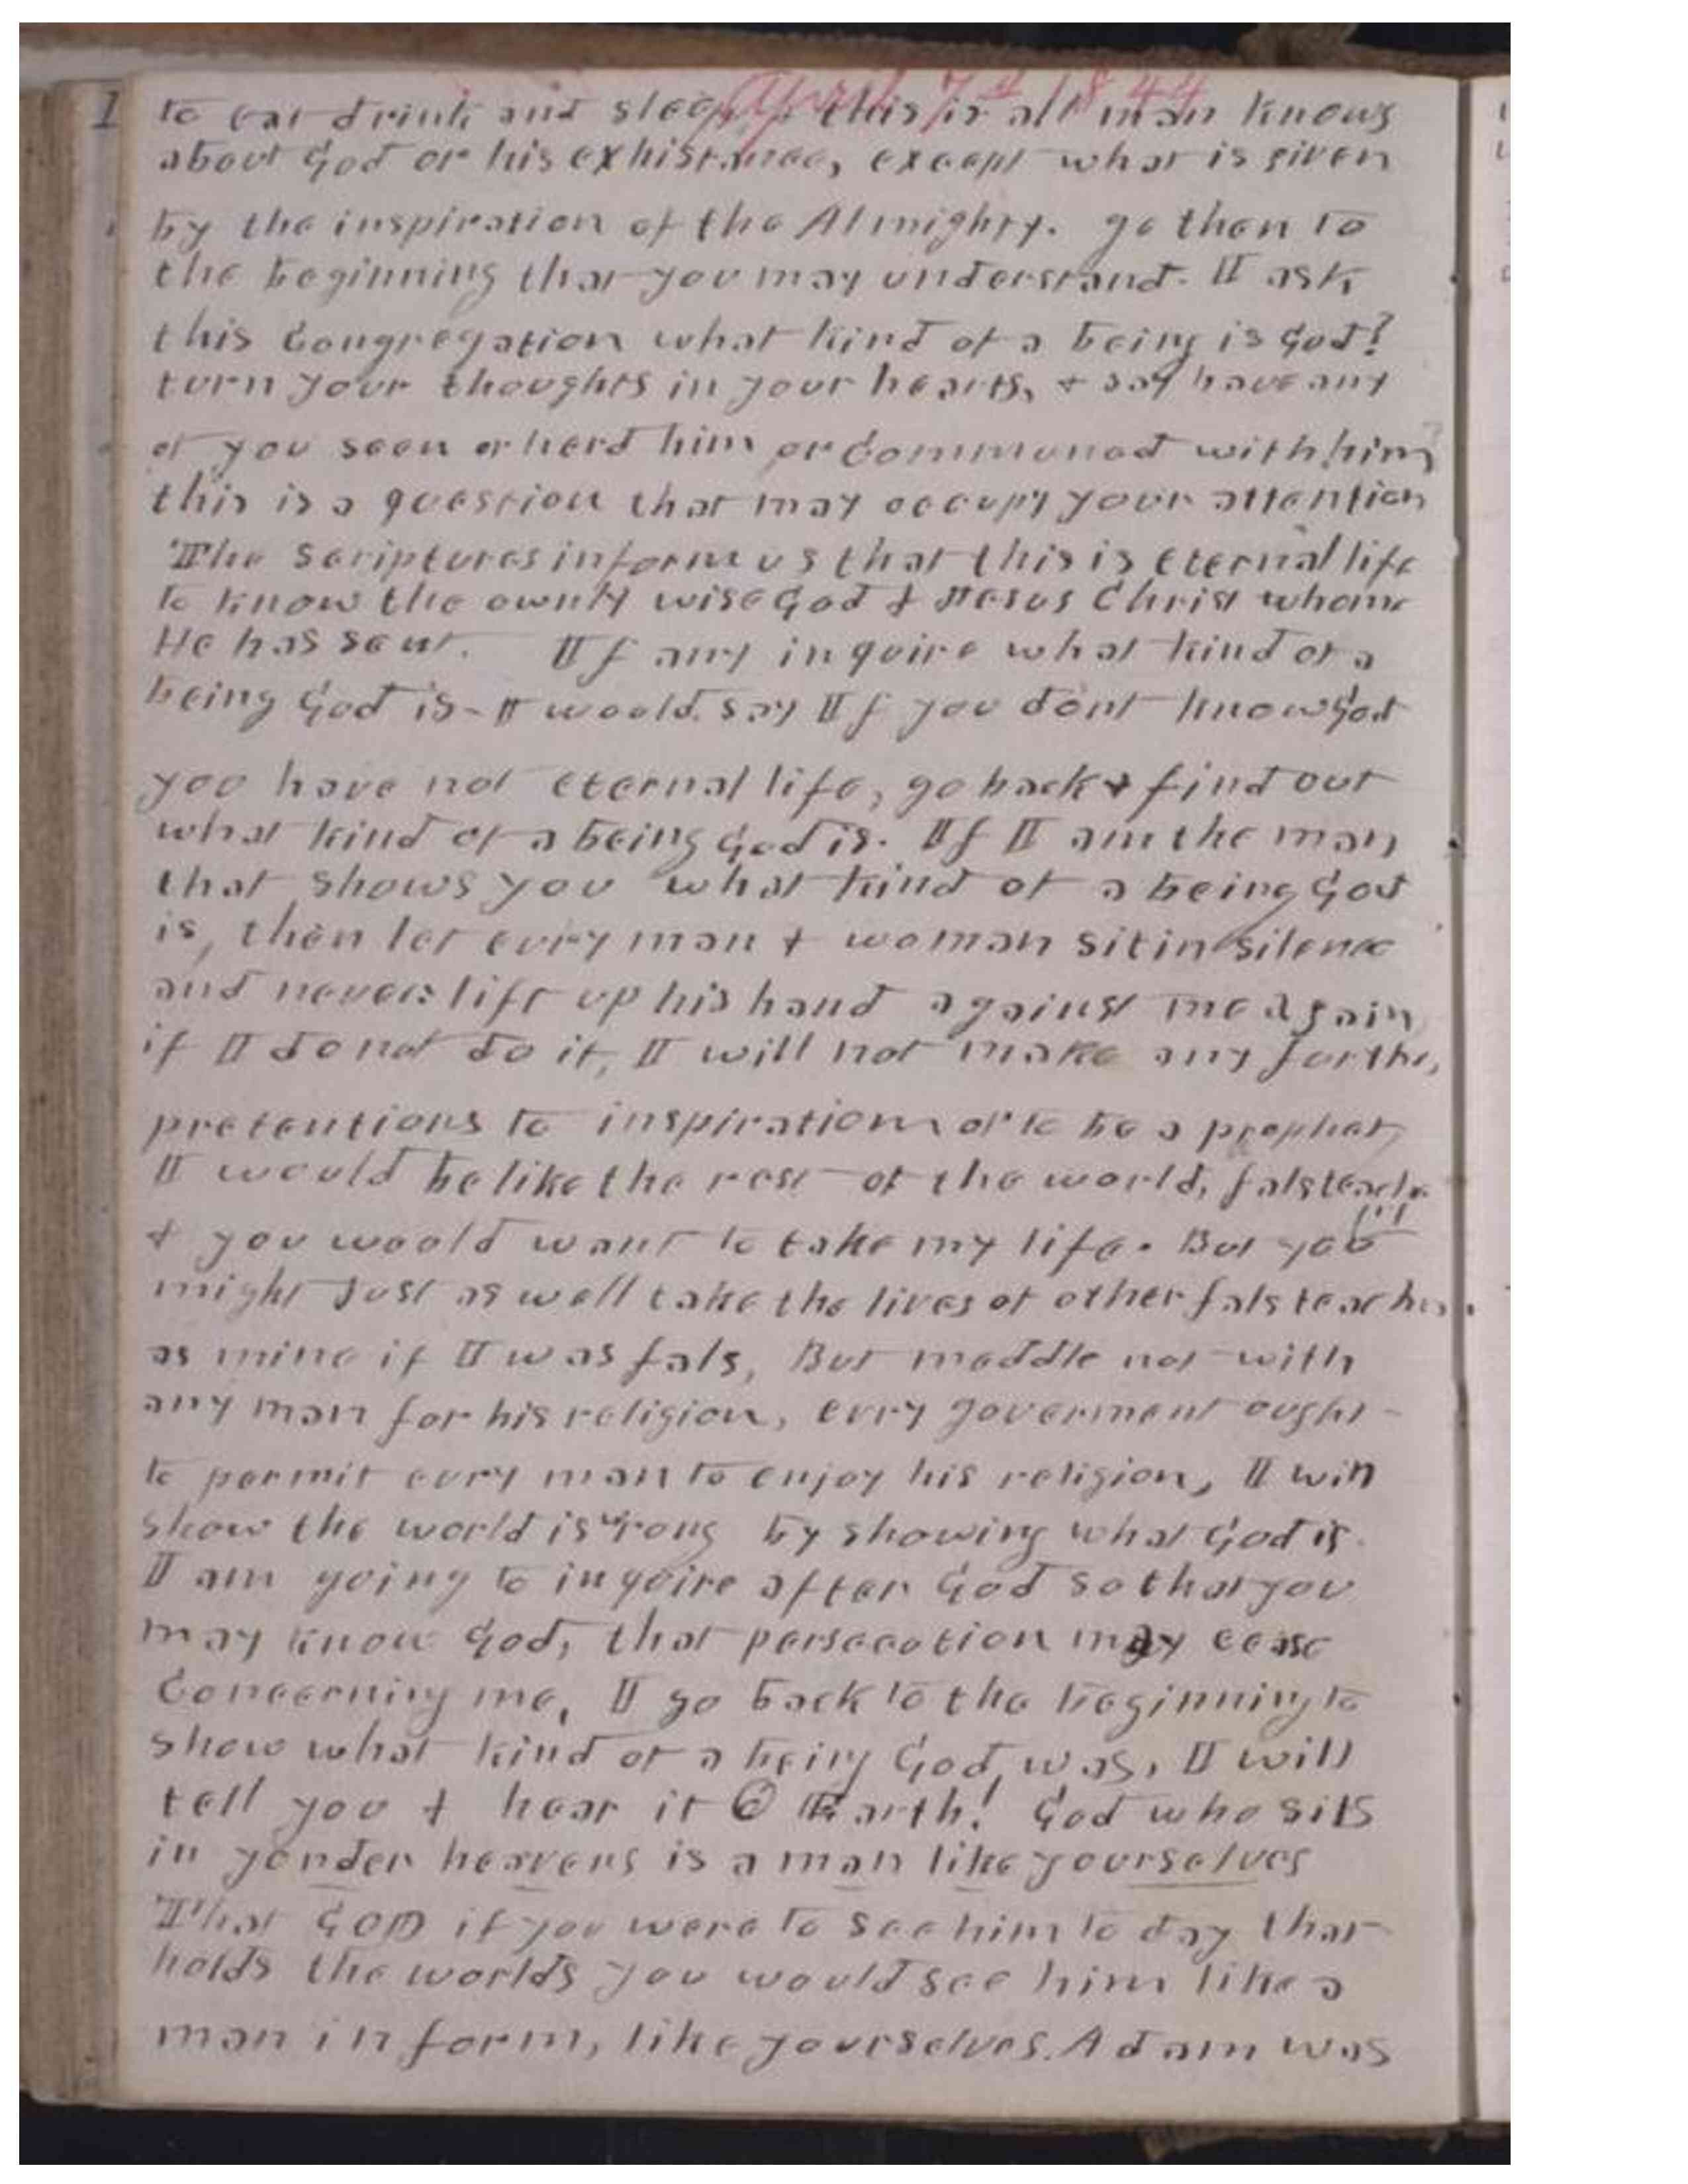 April 7th 1844
to eat drink and sleep, this is all man knows
about God or his exhistance, except what is given
by the inspiration of the Almighty. go then to
the beginning that you may understand. I ask
this Congregation what kind of a being is God?
turn your thoughts in your hearts, & say have any
of you seen or herd him or Communed with him?
this is a question that may occupy your attention
The Scriptures inform us that this is eternal life
to know the ownly wise God & Jesus Christ whome
He has sent. If any inquire what kind of a
being God is - I would say If you dont know God
you have not eternal life, go back & find out
what kind of a being God is. If I am the man
that shows you what kind of a being God
is, then let evry man & woman sit in silence
and never lift up his hand against me again
if I do not do it, I will not make any further
pretentions to inspiration or to be a prophet
I would be like the rest of the world, fals teacher
& you woold want to take my life. But you
might Just as well take the lives of other fals teachers
as mine if I was fals, But meddle not with
any man for his religion, evry goverment ought
to permit evry man to enjoy his religion, I will
show the world is wrong by showing what God is.
I am going to inquire after God so that you
may know God, that persecution may cease
Concerning me, I go back to the beginning to
show what kind of a being God was, I will
tell you & hear it O Earth! God who sits
in yonder heavens is a man like yourselves
That GOD if you were to see him to day that
holds the worlds you would see him like a
man in form, like yourselves. Adam was